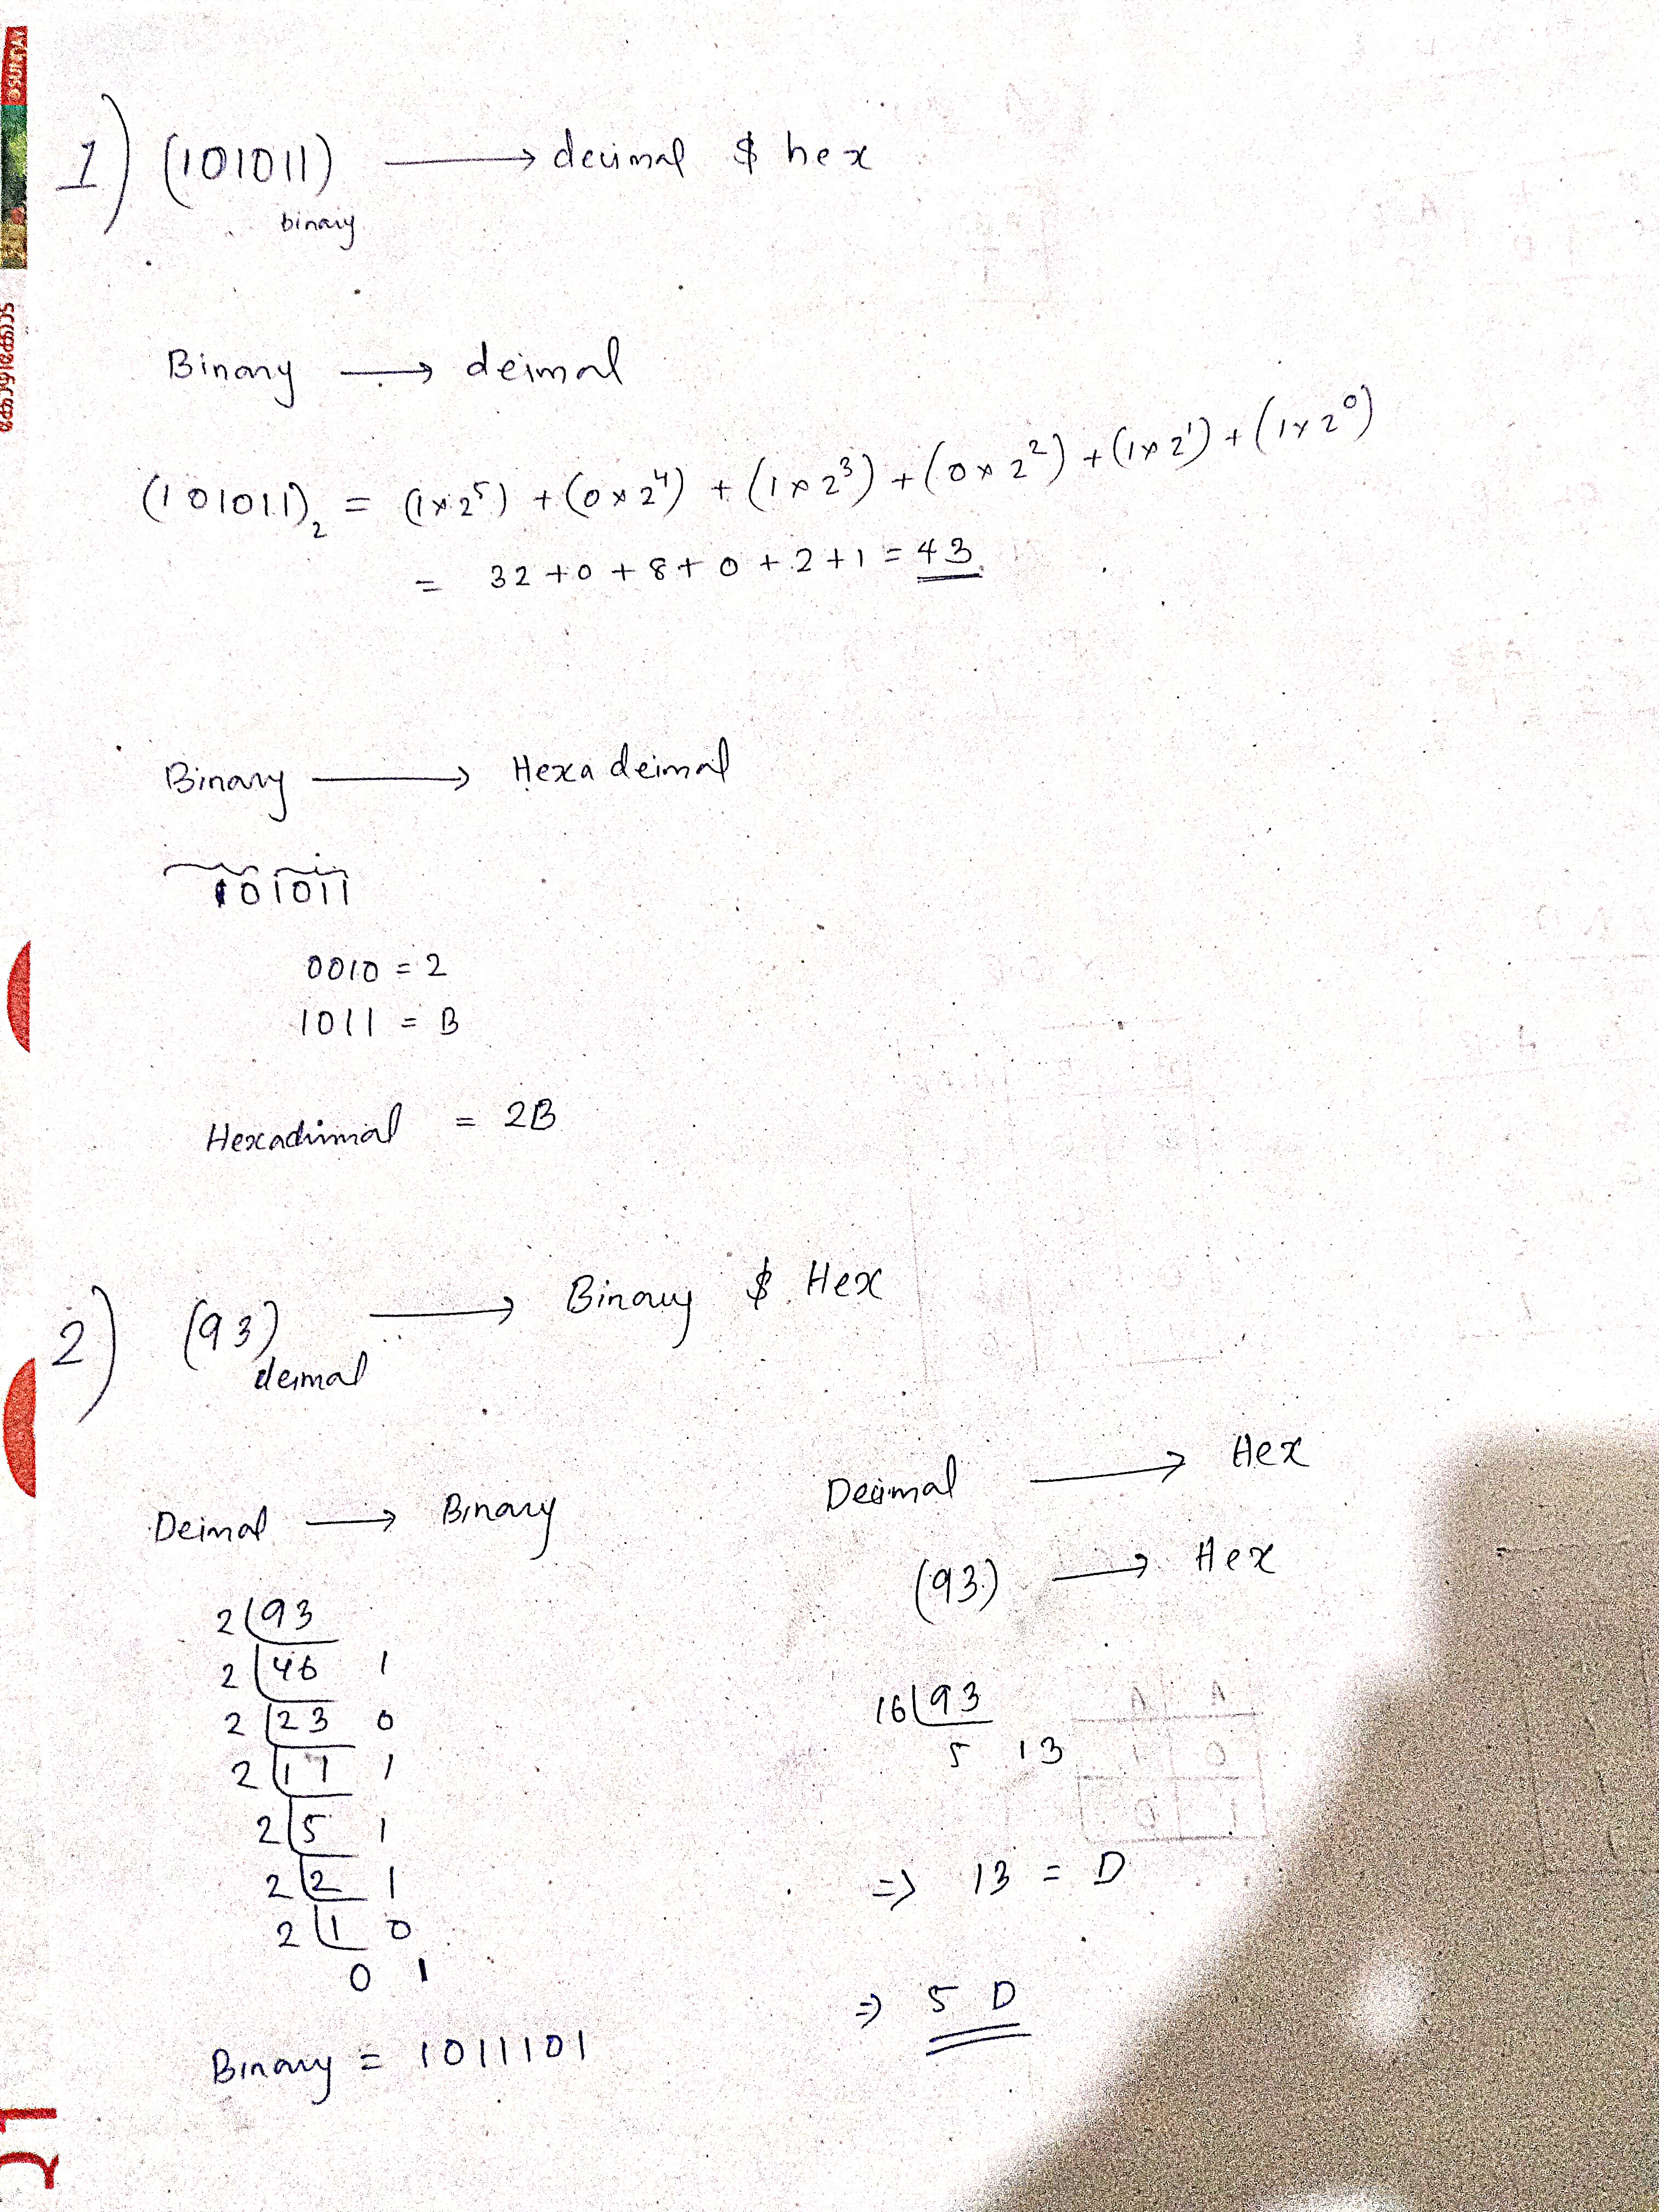 SUNDAY
കോഴിക്കോട്
1) (101011) binary → decimal & hex
Binary → deimal
(101011)₂ = (1×2⁵) + (0×2⁴) + (1×2³) + (0×2²) + (1×2¹) + (1×2⁰)
= 32 + 0 + 8 + 0 + 2 + 1 = 43
Binary → Hexa deimal
101011
0010 = 2
1011 = B
Hexadimal = 2B
2) (93) deimal → Binary & Hex
Deimal → Binary
2 | 93
2 | 46 1
2 | 23 0
2 | 11 1
2 | 5 1
2 | 2 1
2 | 1 0
0 1
Binary = 1011101
Decimal → Hex
(93) → Hex
16 | 93
5 13
⇒ 13 = D
⇒ 5 D